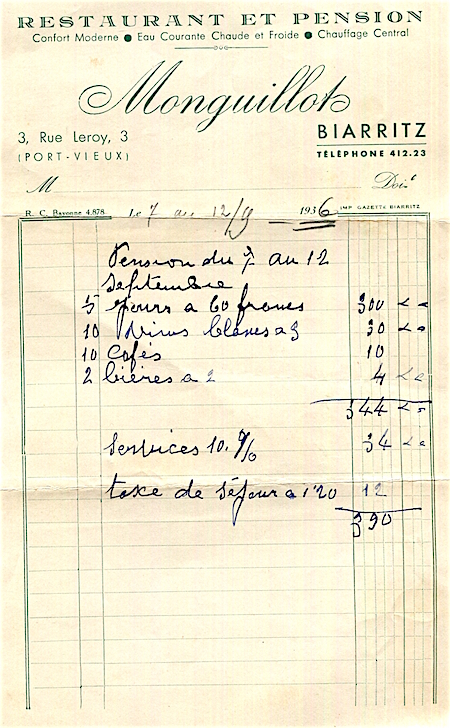 RESTAURANT ET PENSION
Confort Moderne ● Eau Courante Chaude et Froide ● Chauffage Central
Monguillot
3, Rue Leroy, 3
(PORT-VIEUX)
BIARRITZ
TÉLÉPHONE 412.23
M Doit
R. C. Bayonne 4.878. Le 7 au 12/9 1936 IMP. GAZETTE BIARRITZ
Pension du 7 au 12
Septembre
5 jours a 60 francs 300
10 Vins blancs a 3 30
10 Cafés 10
2 bières a 2 4
344
Services 10. % 34
taxe de séjour a 1'20 12
390